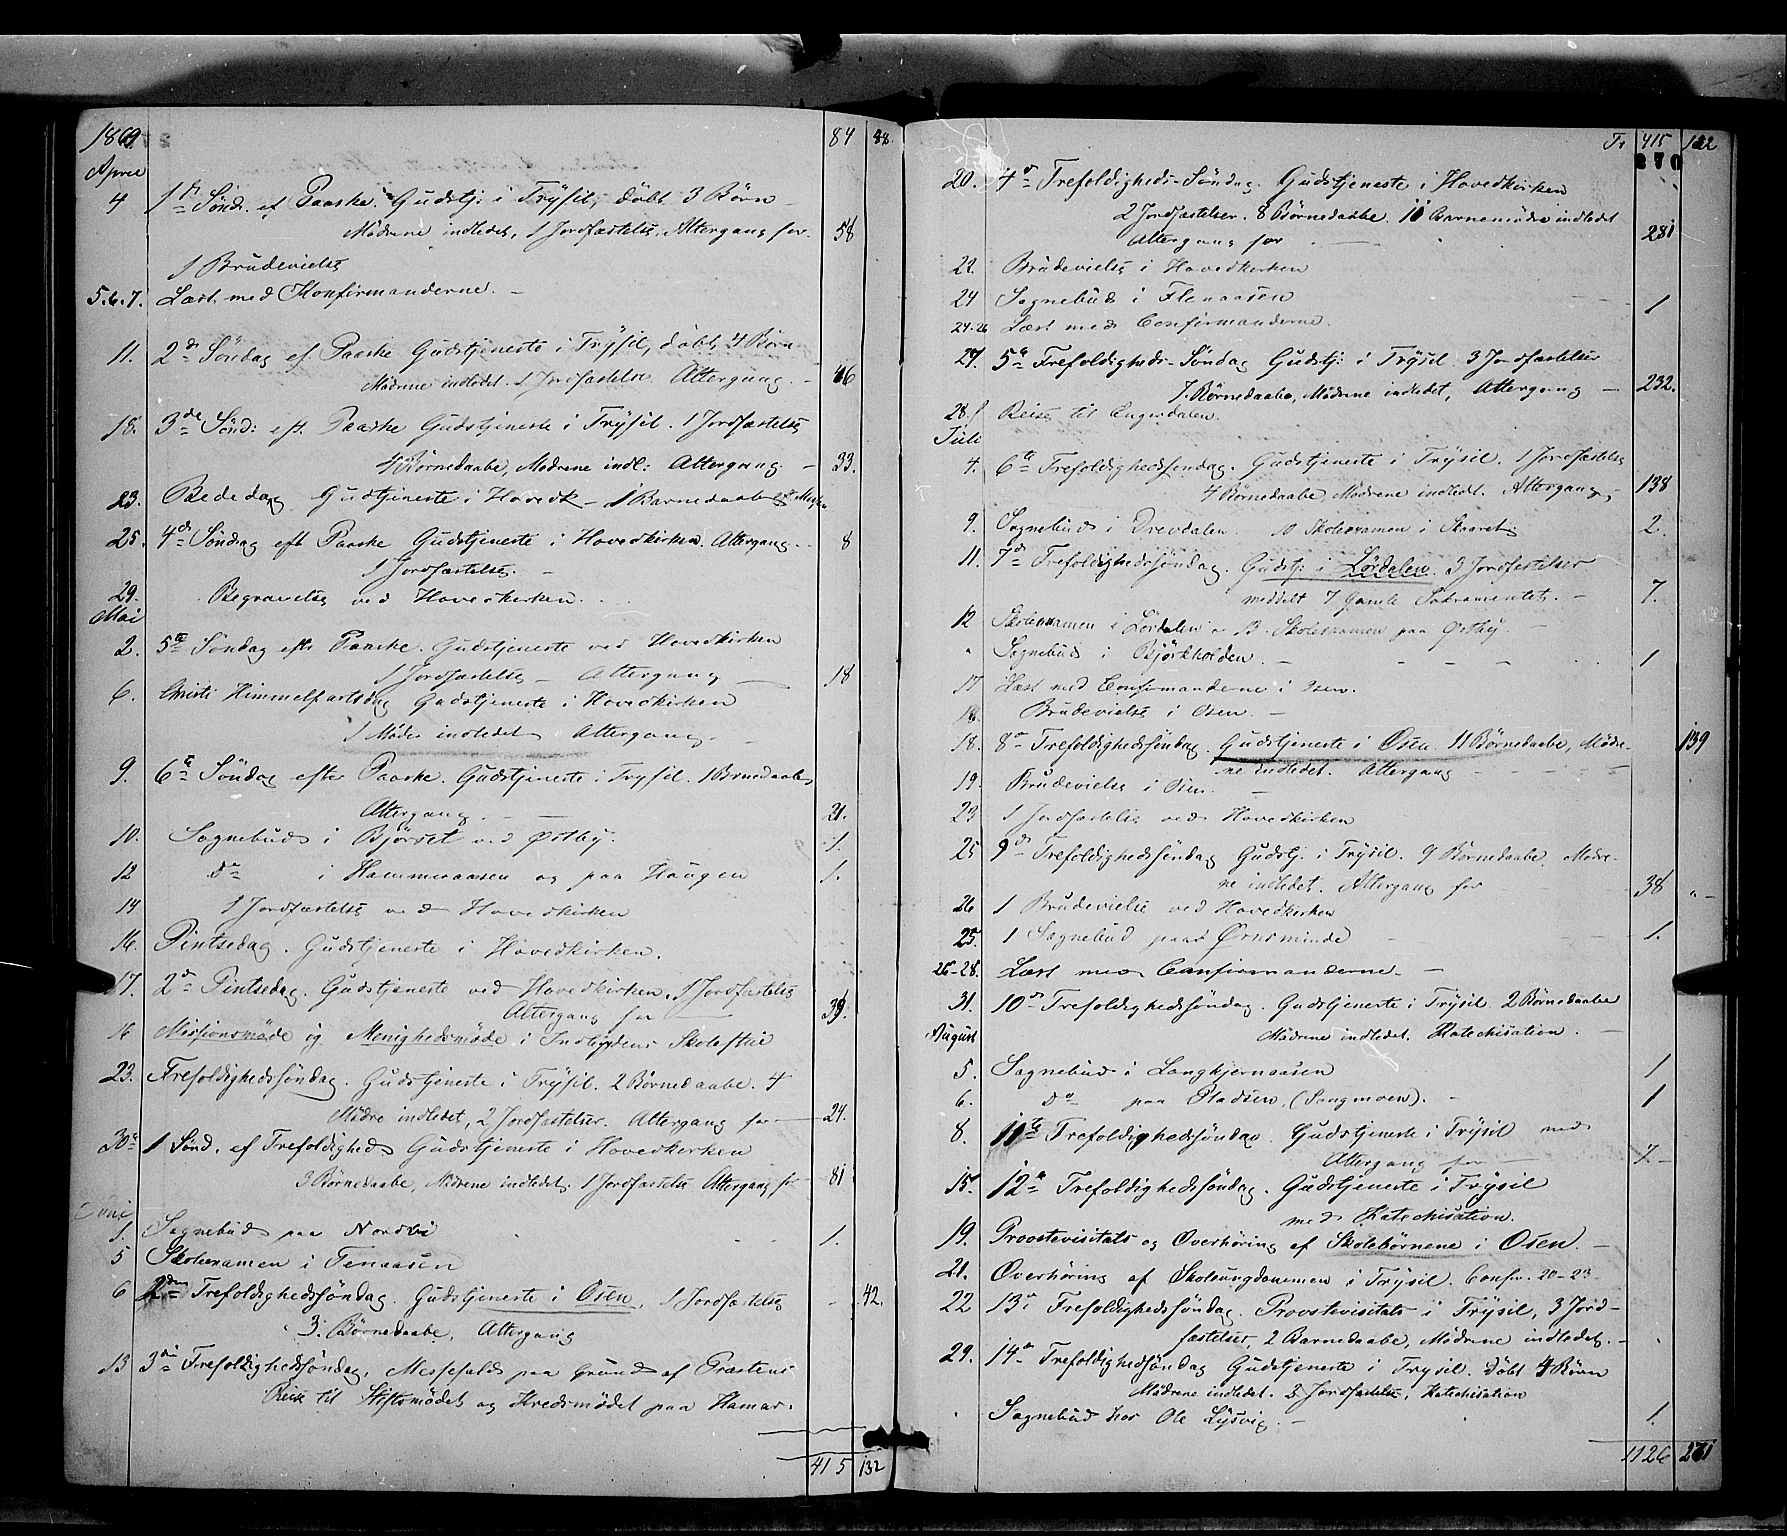 1869. 84 88.
April
4 1ste Sönd. ef Paaske. Gudstj: i Trysil, döbt 3 Börn
Mödrene indledet, 1 Jordfæstelse. Altergang for. 58
1 Brudevielse
5.6.7. Læst med Konfirmanderne. –
11. 2d Söndag ef. Paaske Gudstjeneste i Trysil, döbt 4 Börn
Mödrene indledet. 1 Jordfæstelse. Altergang. – 46
18. 3de Sönd: eft. Paaske Gudstjeneste i Trysil. 1 Jordfæstelse
4 Börnedaabe, Mödrene indl: Altergang. – 33.
23. Bededag Gudstjeneste i Hovedk – 1 Barnedaab
25. 4de Söndag eft Paaske Gudstjeneste i Hovedkirken. Altergang. 8
1 Jordfæstelse. –
29. Begravelse ved Hovedkirken.
Mai
2. 5te Söndag eft Paaske. Gudstjeneste ved Hovedkirken
1 Jordfæstelse – Altergang – 18
6. Christi Himmelfartsdag Gudstjeneste i Hovedkirken
1 Möder indledet Altergang. –
9. 6te Söndag efter Paaske. Gudstjeneste i Trysil. 1 Barnedaab
Altergang. – 21.
10. Sognebud i Björset ved Østby. 1.
12 do i Hammeraasen og paa Haugen 1.
14 1 Jordfæstelse ved Hovedkirken
16. Pintsedag. Gudstjeneste i Hovedkirken.
17. 2d Pintsedag. Gudstjeneste ved Hovedkirken. 1 Jordfæstelse
Altergang for 39.
16 Missionsmöde og Menighedsmöde i Indbygdens Skolestue
23. Trefoldighedssöndag. Gudstjeneste i Trysil. 2 Börnedaabe. 4
Mödre indledet, 2 Jordfæstelser. Altergang for 24.
30te 1 Sönd. ef Trefoldighed Gudstjeneste i Hovedkirken
3 Börnedaabe, Mödrene indledet. 1 Jordfæstelse Altergang for 81
Juni
1. Sognebud paa Nordbu 1.
5 Skoleexamen i Tenaasen
6 2den Trefoldighedssöndag. Gudstjeneste i Osen. 1 Jordfæstelse – 42.
3. Börnedaabe, Altergang
13 3die Trefoldighedssöndag, Messefald paa Grund af Præstens
Reise til Stiftsmödet og Kredsmödet paa Hamar.
415 132
Tr 415 132
270
20. 4d Trefoldigheds-Söndag. Gudstjeneste i Hovedkirken
2 Jordfæstelser. 8 Börnedaabe. 10 Barnemödre indledet
Altergang for 281
22. Brudevielse i Hovedkirken
24 Sognebud i Flenaasen 1
24-26 Læst med Confirmanderne.
27. 5te Trefoldigheds-Söndag Gudstj: i Trysil 3 Jordfæstelser
7 Börnedaabe, Mödrene indledet, Altergang – 232.
28. Reise til Engerdalen.
Juli
4. 6te Trefoldighedssöndag. Gudstjeneste i Trysil. 1 Jordfæstelse
4 Börnedaabe, Mödrene indledt. Altergang, 138
9. Sognebud i Drevdalen. 10 Skoleexamen i Skaaret 2.
11. 7d Trefoldighedssöndag. Gudstj: i Lördalen. 3 Jordfæstelser
meddelt 7 Gamle Sakramentet. – 7.
12 Skoleexamen i Lördalen 13 Skoleexamen paa Østby. –
" Sognebud i Björkholden. – 1
17 Læst med Confirmanderne i Osen.
18. Brudevielse i Osen. –
18. 8de Trefoldighedssöndag. Gudstjeneste i Osen. 11 Börnedaabe, Mödre- 139
ne indledet. Altergang
19. Brudevielse i Osen. –
23 1 Jordfæstelse ved Hovedkirken
25 9de Trefoldighedssöndag Gudstj: i Trysil. 9 Börnedaabe Mödre-
ne indledet. Altergang for 38 " –
26 1 Brudevielse ved Hovedkirken
25. 1 Sognebud paa Ørnsminde – 1.
26-28. Læst med Confirmanderne. –
31. 10de Trefoldighedssöndag. Gudstjeneste i Trysil 2 Börnedaabe
August Mödrene indledet. Katechisation. –
5. Sognebud i Langkjernaasen 1
6. Do paa Pladsen, (Sangmoen). – 1
8. 11te Trefoldighedssöndag. Gudstjeneste i Trysil med
Altergang for – 7. –
15. 12te Trefoldighedssöndag. Gudstjeneste i Trysil
med Katechisation.
19. Proostevisitats og Overhöring af Skolebörnene i Osen. –
21. Overhöring af Skoleungdommen i Trysil. Confir. 20-23
22 13de Trefoldighedssöndag. Proostevisitats i Trysil, 3 Jord-
fæstelser, 2 Barnedaabe, Mödrene indledet. –
29. 14de Trefoldighedssöndag Gudstjeneste i Trysil. Döbt 4 Börn
Mödrene indledet. 2 Jordfæstelse, Katechisation
Sognebud hos Ole Lysvig. – 1.
1126 271